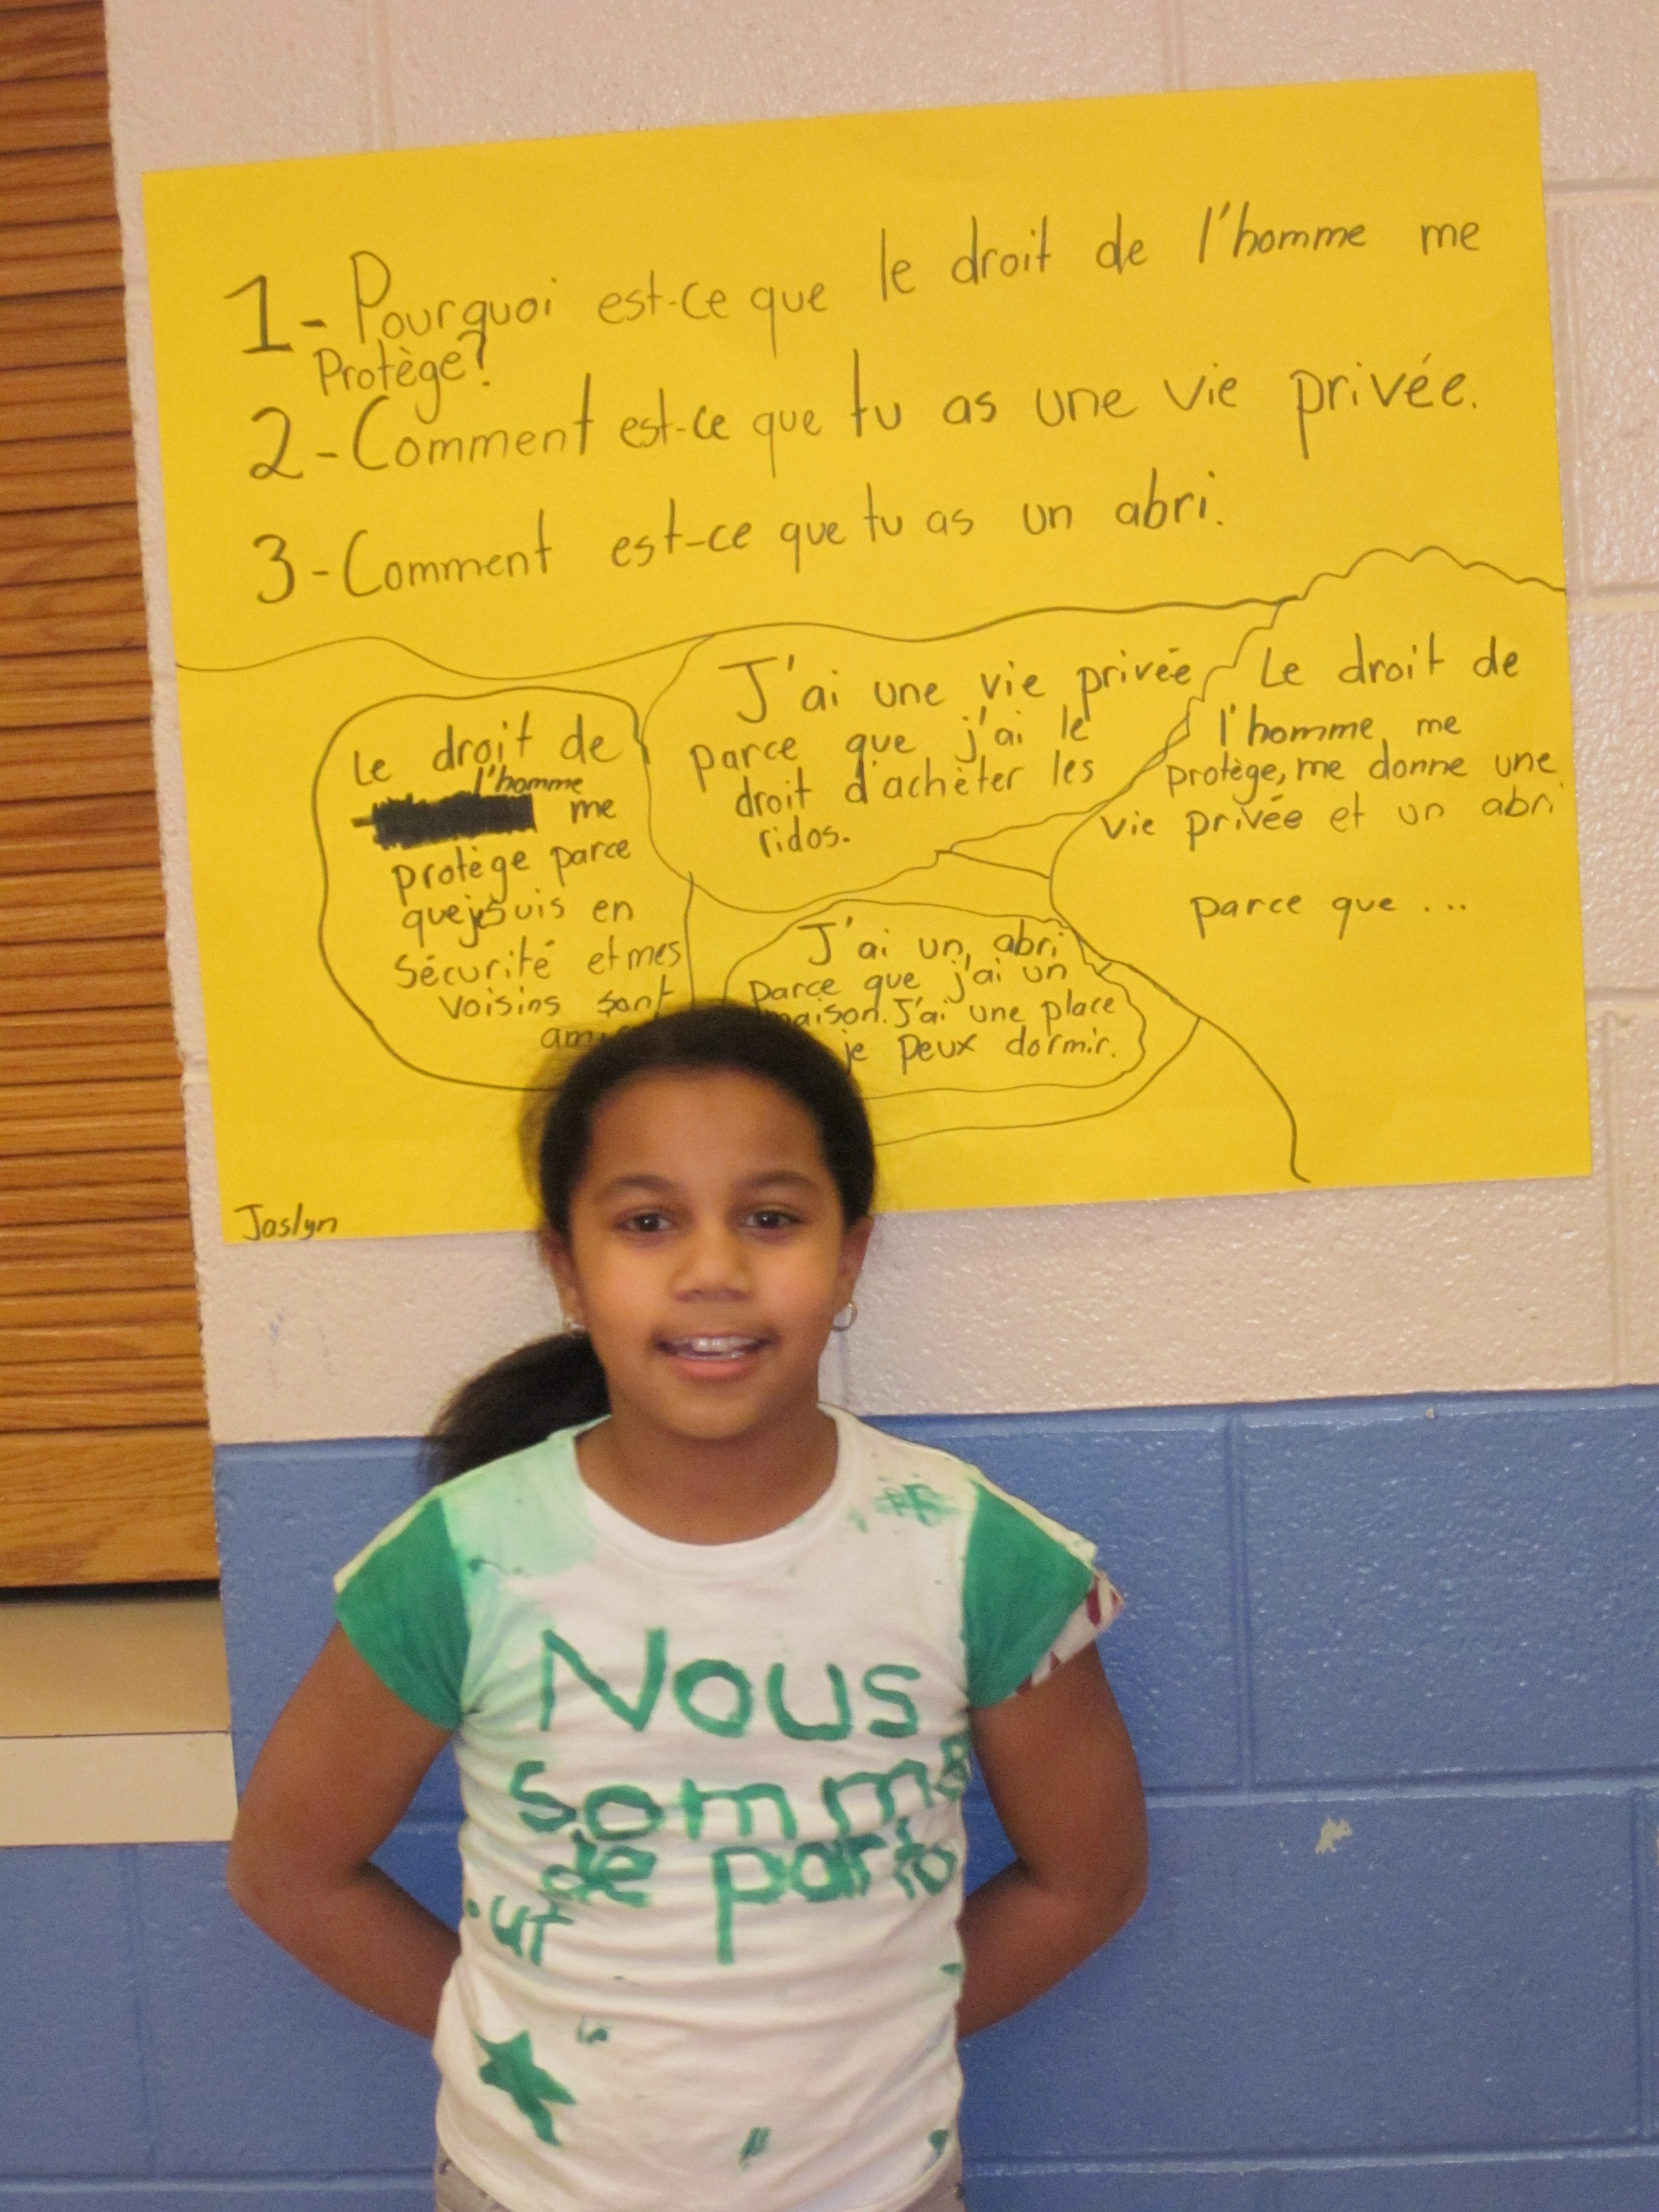 1-Pourquoi est-ce que le droit de l'homme me
Protège?
2-Comment est-ce que tu as une vie privée.
3-Comment est-ce que tu as un abri.
Le droit de
l'homme
me
protège parce
que je suis en
Sécurité et mes
voisins sont
J'ai une vie privée
parce que j'ai le
droit d'achèter les
ridos.
J'ai un abri
parce que j'ai un
maison. J'ai une place
je peux dormir.
Le droit de
l'homme me
protège, me donne une
vie privée et un abri
parce que ...
Jaslyn
Nous
somme
de parto
ut